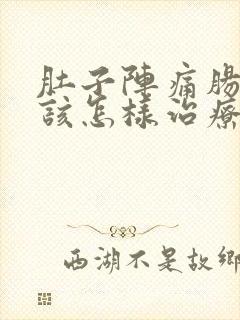 肚子陣痛腸
該怎樣治療
西湖不是故鄉